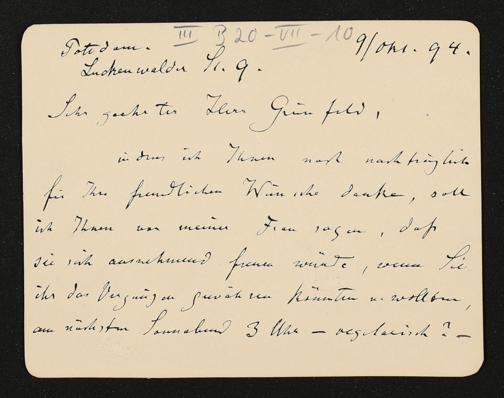 III B 20 - VII - 10
Potsdam. 9/Okt. 94.
Luckenwalder St. 9.
Sehr geehrter Herr Grünfeld,
indem ich Ihnen noch nachträglich
für Ihre freundlichen Wünsche danke, soll
ich Ihnen von meiner Frau sagen, daß
sie sich ausnehmend freuen würde, wenn Sie
ihr das Vergnügen gewähren könnten u. wollten,
am nächsten Sonnabend 3 Uhr – vegetarisch? –